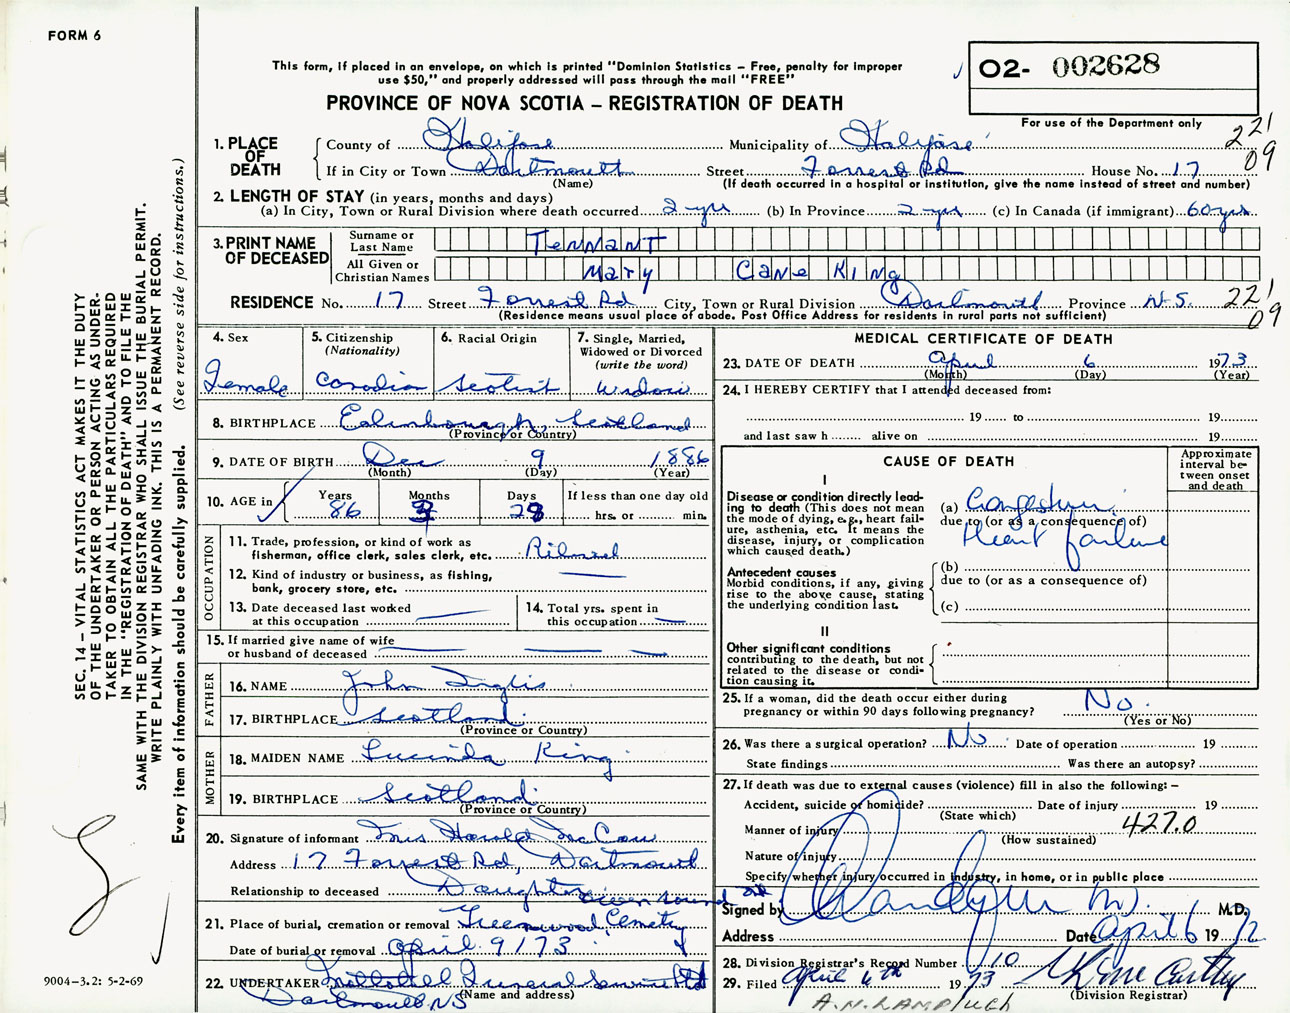 FORM 6
This form, if placed in an envelope, on which is printed "Dominion Statistics – Free, penalty for improper
use $50," and properly addressed will pass through the mail "FREE"
PROVINCE OF NOVA SCOTIA – REGISTRATION OF DEATH
O2- 002628
For use of the Department only
221
09
1. PLACE OF DEATH
County of Halifax Municipality of Halifax
If in City or Town Dartmouth Street Forrest Rd House No. 17
(Name) (If death occurred in a hospital or institution, give the name instead of street and number)
2. LENGTH OF STAY (in years, months and days)
(a) In City, Town or Rural Division where death occurred 2 yrs (b) In Province 2 yrs (c) In Canada (if immigrant) 60 yrs
3. PRINT NAME OF DECEASED
Surname or Last Name TENNANT
All Given or Christian Names Mary Cane King
RESIDENCE No. 17 Street Forrest Rd City, Town or Rural Division Dartmouth Province N.S.
(Residence means usual place of abode. Post Office Address for residents in rural parts not sufficient)
221
09
4. Sex
Female
5. Citizenship
(Nationality)
Canadian
6. Racial Origin
7. Single, Married,
Widowed or Divorced
(write the word)
widow
8. BIRTHPLACE Edinbourgh, Scotland
(Province or Country)
9. DATE OF BIRTH Dec 9 1886
(Month) (Day) (Year)
10. AGE in
Years Months Days If less than one day old
86 3 28 hrs. or min.
OCCUPATION
11. Trade, profession, or kind of work as
fisherman, office clerk, sales clerk, etc.
12. Kind of industry or business, as fishing,
bank, grocery store, etc.
13. Date deceased last worked
at this occupation
14. Total yrs. spent in
this occupation
15. If married give name of wife
or husband of deceased
FATHER
16. NAME John Inglis
17. BIRTHPLACE Scotland
(Province or Country)
MOTHER
18. MAIDEN NAME Lucinda King
19. BIRTHPLACE Scotland
(Province or Country)
20. Signature of informant Mrs Harold
Address 17 Forrest Rd, Dartmouth
Relationship to deceased Daughter
Owen Sound Ont
21. Place of burial, cremation or removal Greenwood Cemetery
Date of burial or removal April 9/73
22. UNDERTAKER Funeral Service Ltd
(Name and address)
Dartmouth, NS
MEDICAL CERTIFICATE OF DEATH
23. DATE OF DEATH April 6 1973
(Month) (Day) (Year)
24. I HEREBY CERTIFY that I attended deceased from:
19 to 19
and last saw h alive on 19
CAUSE OF DEATH
Approximate
interval be-
tween onset
and death
I
Disease or condition directly lead-
ing to death (This does not mean
the mode of dying, e.g., heart fail-
ure, asthenia, etc. It means the
disease, injury, or complication
which caused death.)
(a) Congestive
due to (or as a consequence of)
Heart failure
Antecedent causes
Morbid conditions, if any, giving
rise to the above cause, stating
the underlying condition last.
(b)
due to (or as a consequence of)
(c)
II
Other significant conditions
contributing to the death, but not
related to the disease or condi-
tion causing it.
25. If a woman, did the death occur either during
pregnancy or within 90 days following pregnancy? No.
(Yes or No)
26. Was there a surgical operation? No Date of operation 19
State findings Was there an autopsy?
27. If death was due to external causes (violence) fill in also the following: –
Accident, suicide or homicide? Date of injury 19
(State which)
Manner of injury 427.0
(How sustained)
Nature of injury
Specify whether injury occurred in industry, in home, or in public place
Signed by M.D.
Address Date April 6 19
28. Division Registrar's Record Number 10
29. Filed April 6th 1973
(Division Registrar)
SEC. 14 – VITAL STATISTICS ACT MAKES IT THE DUTY
OF THE UNDERTAKER OR PERSON ACTING AS UNDER-
TAKER TO OBTAIN ALL THE PARTICULARS REQUIRED
IN THE "REGISTRATION OF DEATH" AND TO FILE THE
SAME WITH THE DIVISION REGISTRAR WHO SHALL ISSUE THE BURIAL PERMIT.
WRITE PLAINLY WITH UNFADING INK. THIS IS A PERMANENT RECORD.
Every item of information should be carefully supplied. (See reverse side for instructions.)
9004-3.2: 5-2-69